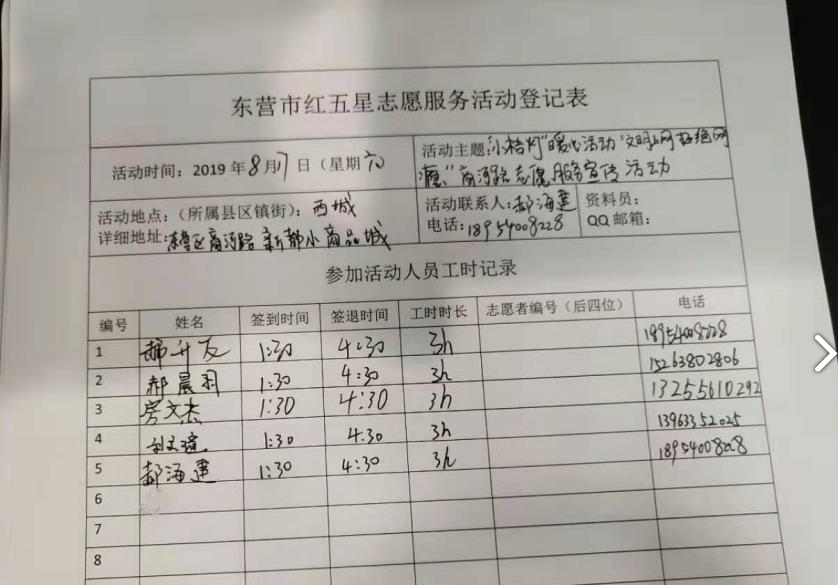 东营市红五星志愿服务活动登记表
活动时间：2019 年8月17日（星期六
活动主题：小桔灯"暖心活动"文明上网拒绝网
瘾"商河路志愿服务宣传活动
活动地点：（所属县区镇街）：西城
详细地址：东营区商河路新都小商品城
活动联系人：郝海建
电话：18954008228
资料员：
QQ 邮箱：
参加活动人员工时记录
编号 姓名 签到时间 签退时间 工时时长 志愿者编号（后四位） 电话
1 郝升友 1:30 4:30 3h 18954008228
2 郝晨羽 1:30 4:30 3h 15263802806
3 房文杰 1:30 4:30 3h 13255610292
4 1:30 4:30 3h 13963352025
5 郝海建 1:30 4:30 3h 18954008228
6
7
8